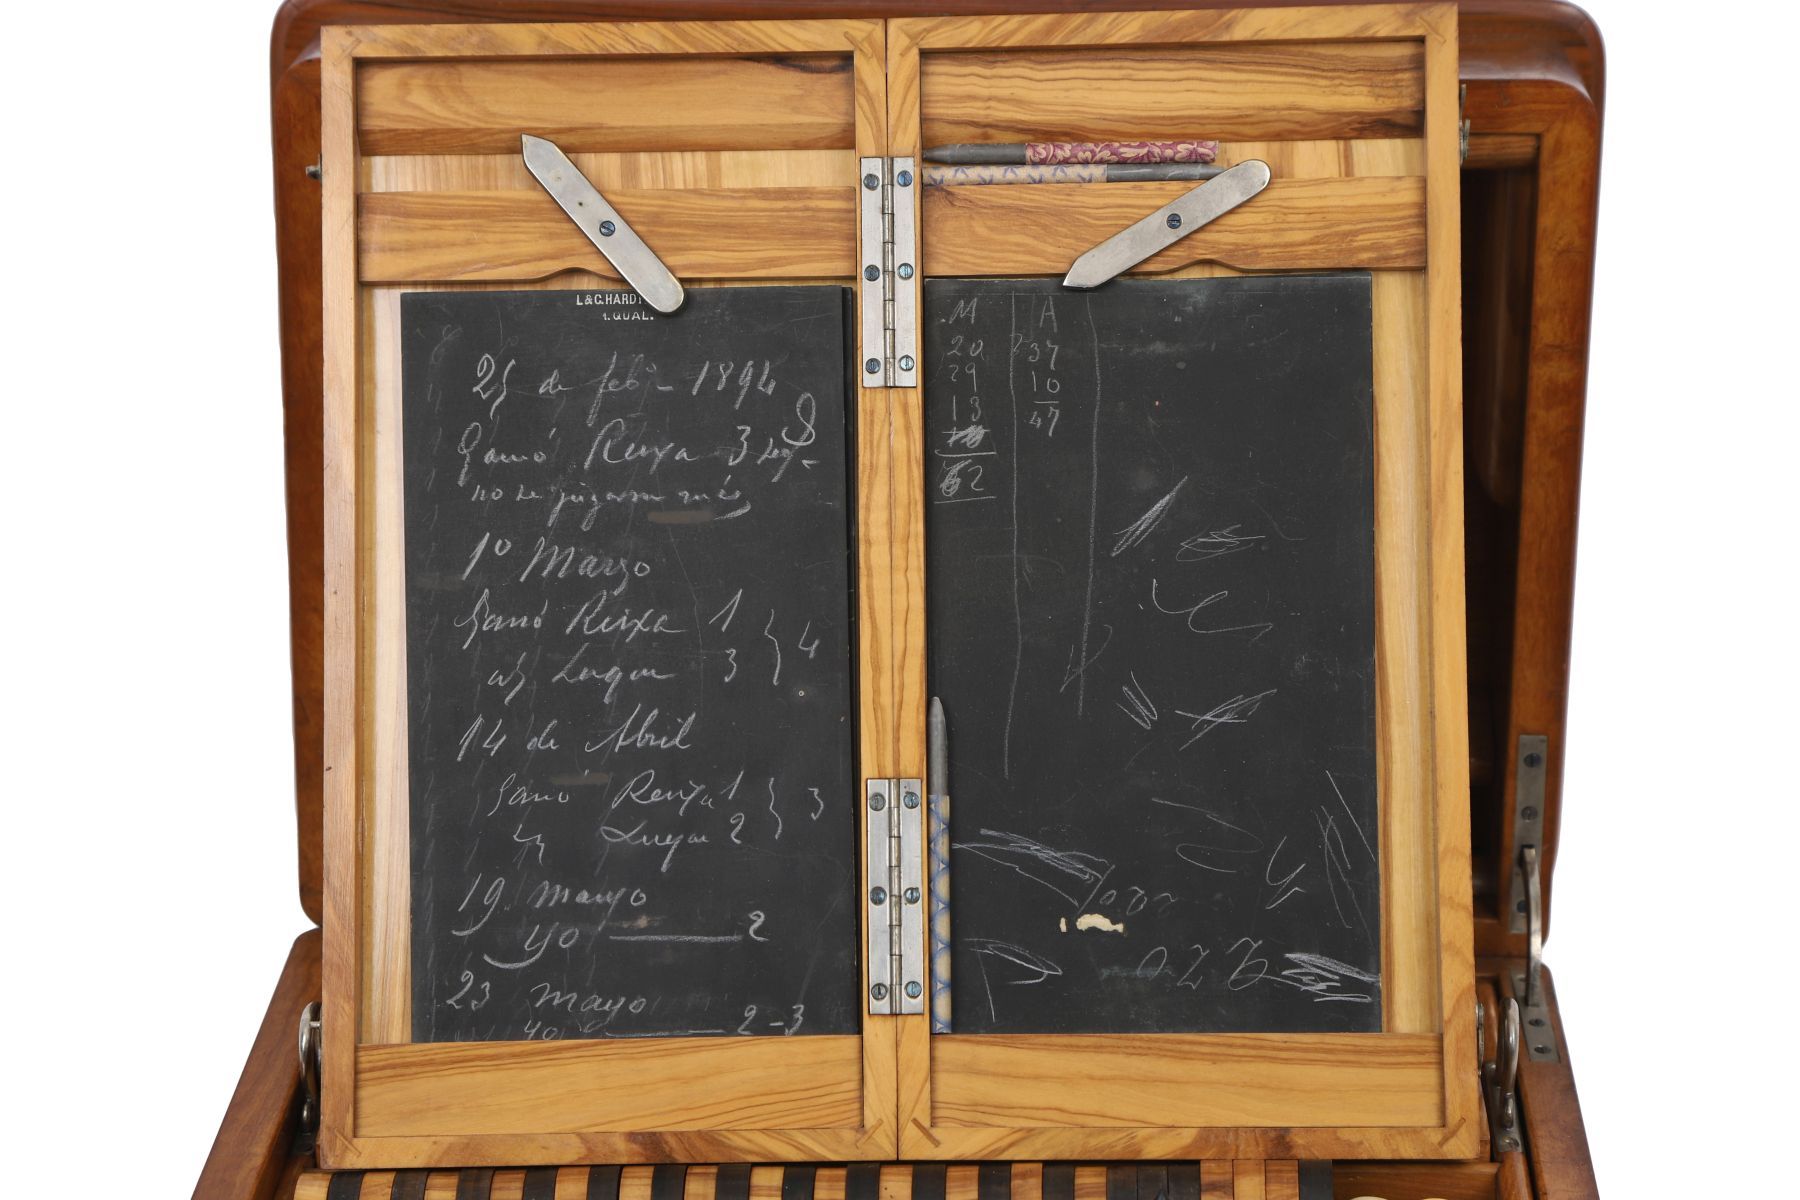 L&C.HARDT
1.QUAL.
25 de feb° 1894
Ganó Reixa 3
no se jugaron más
1° Marzo
Ganó Reixa 1
Luque 3 } 4
14 de Abril
Ganó Reixa 1
Luque 2 } 3
19 mayo
yo 2
23 mayo
yo 2-3
M A
20 37
29 10
13 47
62